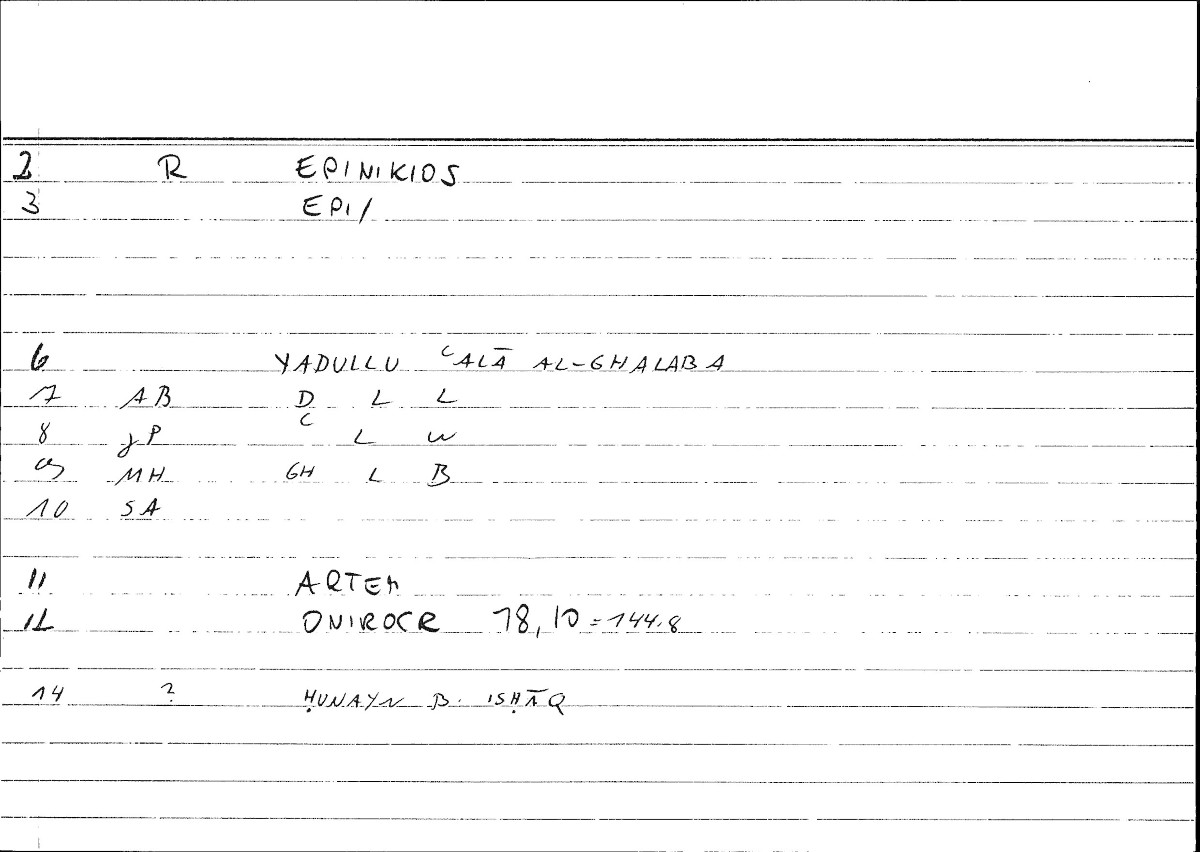 2 R EPINIKIOS
3 EPI/
6 YADULLU ʿALĀ AL-GHALABA
7 AB D L L
8 JP ʿ L W
9 MH GH L B
10 SA
11 ARTEM
12 ONIROCR 18,10=144.8
14 ? ḤUNAYN B. ISḤĀQ